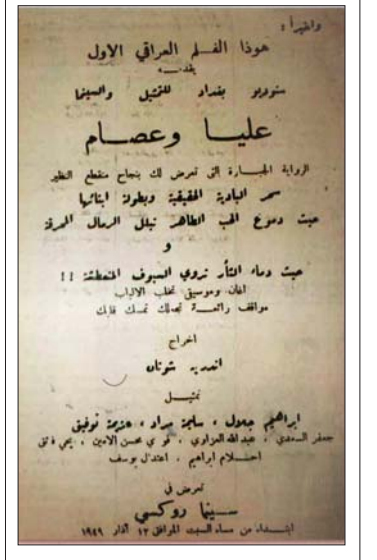 واخيراً :
هوذا الفلم العراقي الاول
يقدمه
ستوديو بغداد للتمثيل والسينما
عليا وعصام
الرواية الجبارة التي تعرض لك بنجاح منقطع النظير
سحر البادية الحقيقية وبطولة ابنائها
حيث دموع الحب الطاهر تبلل الرمال المحرقة
و
حيث دماء الثأر تروي السيوف المتعطشة !!
اغان وموسيقى تخلب الالباب
مواقف رائعة تجعلك تمسك قلبك
اخراج
اندريه شوتان
تمثيل
ابراهيم جلال ، سليمة مراد ، عزيمة توفيق
جعفر السعدي ، عبدالله العزاوي ، فوزي محسن الامين ، يحي فائق
احلام ابراهيم ، اعتدال يوسف
تعرض في
سينما روكسي
ابتداء من مساء السبت الموافق ١٢ آذار ١٩٤٩